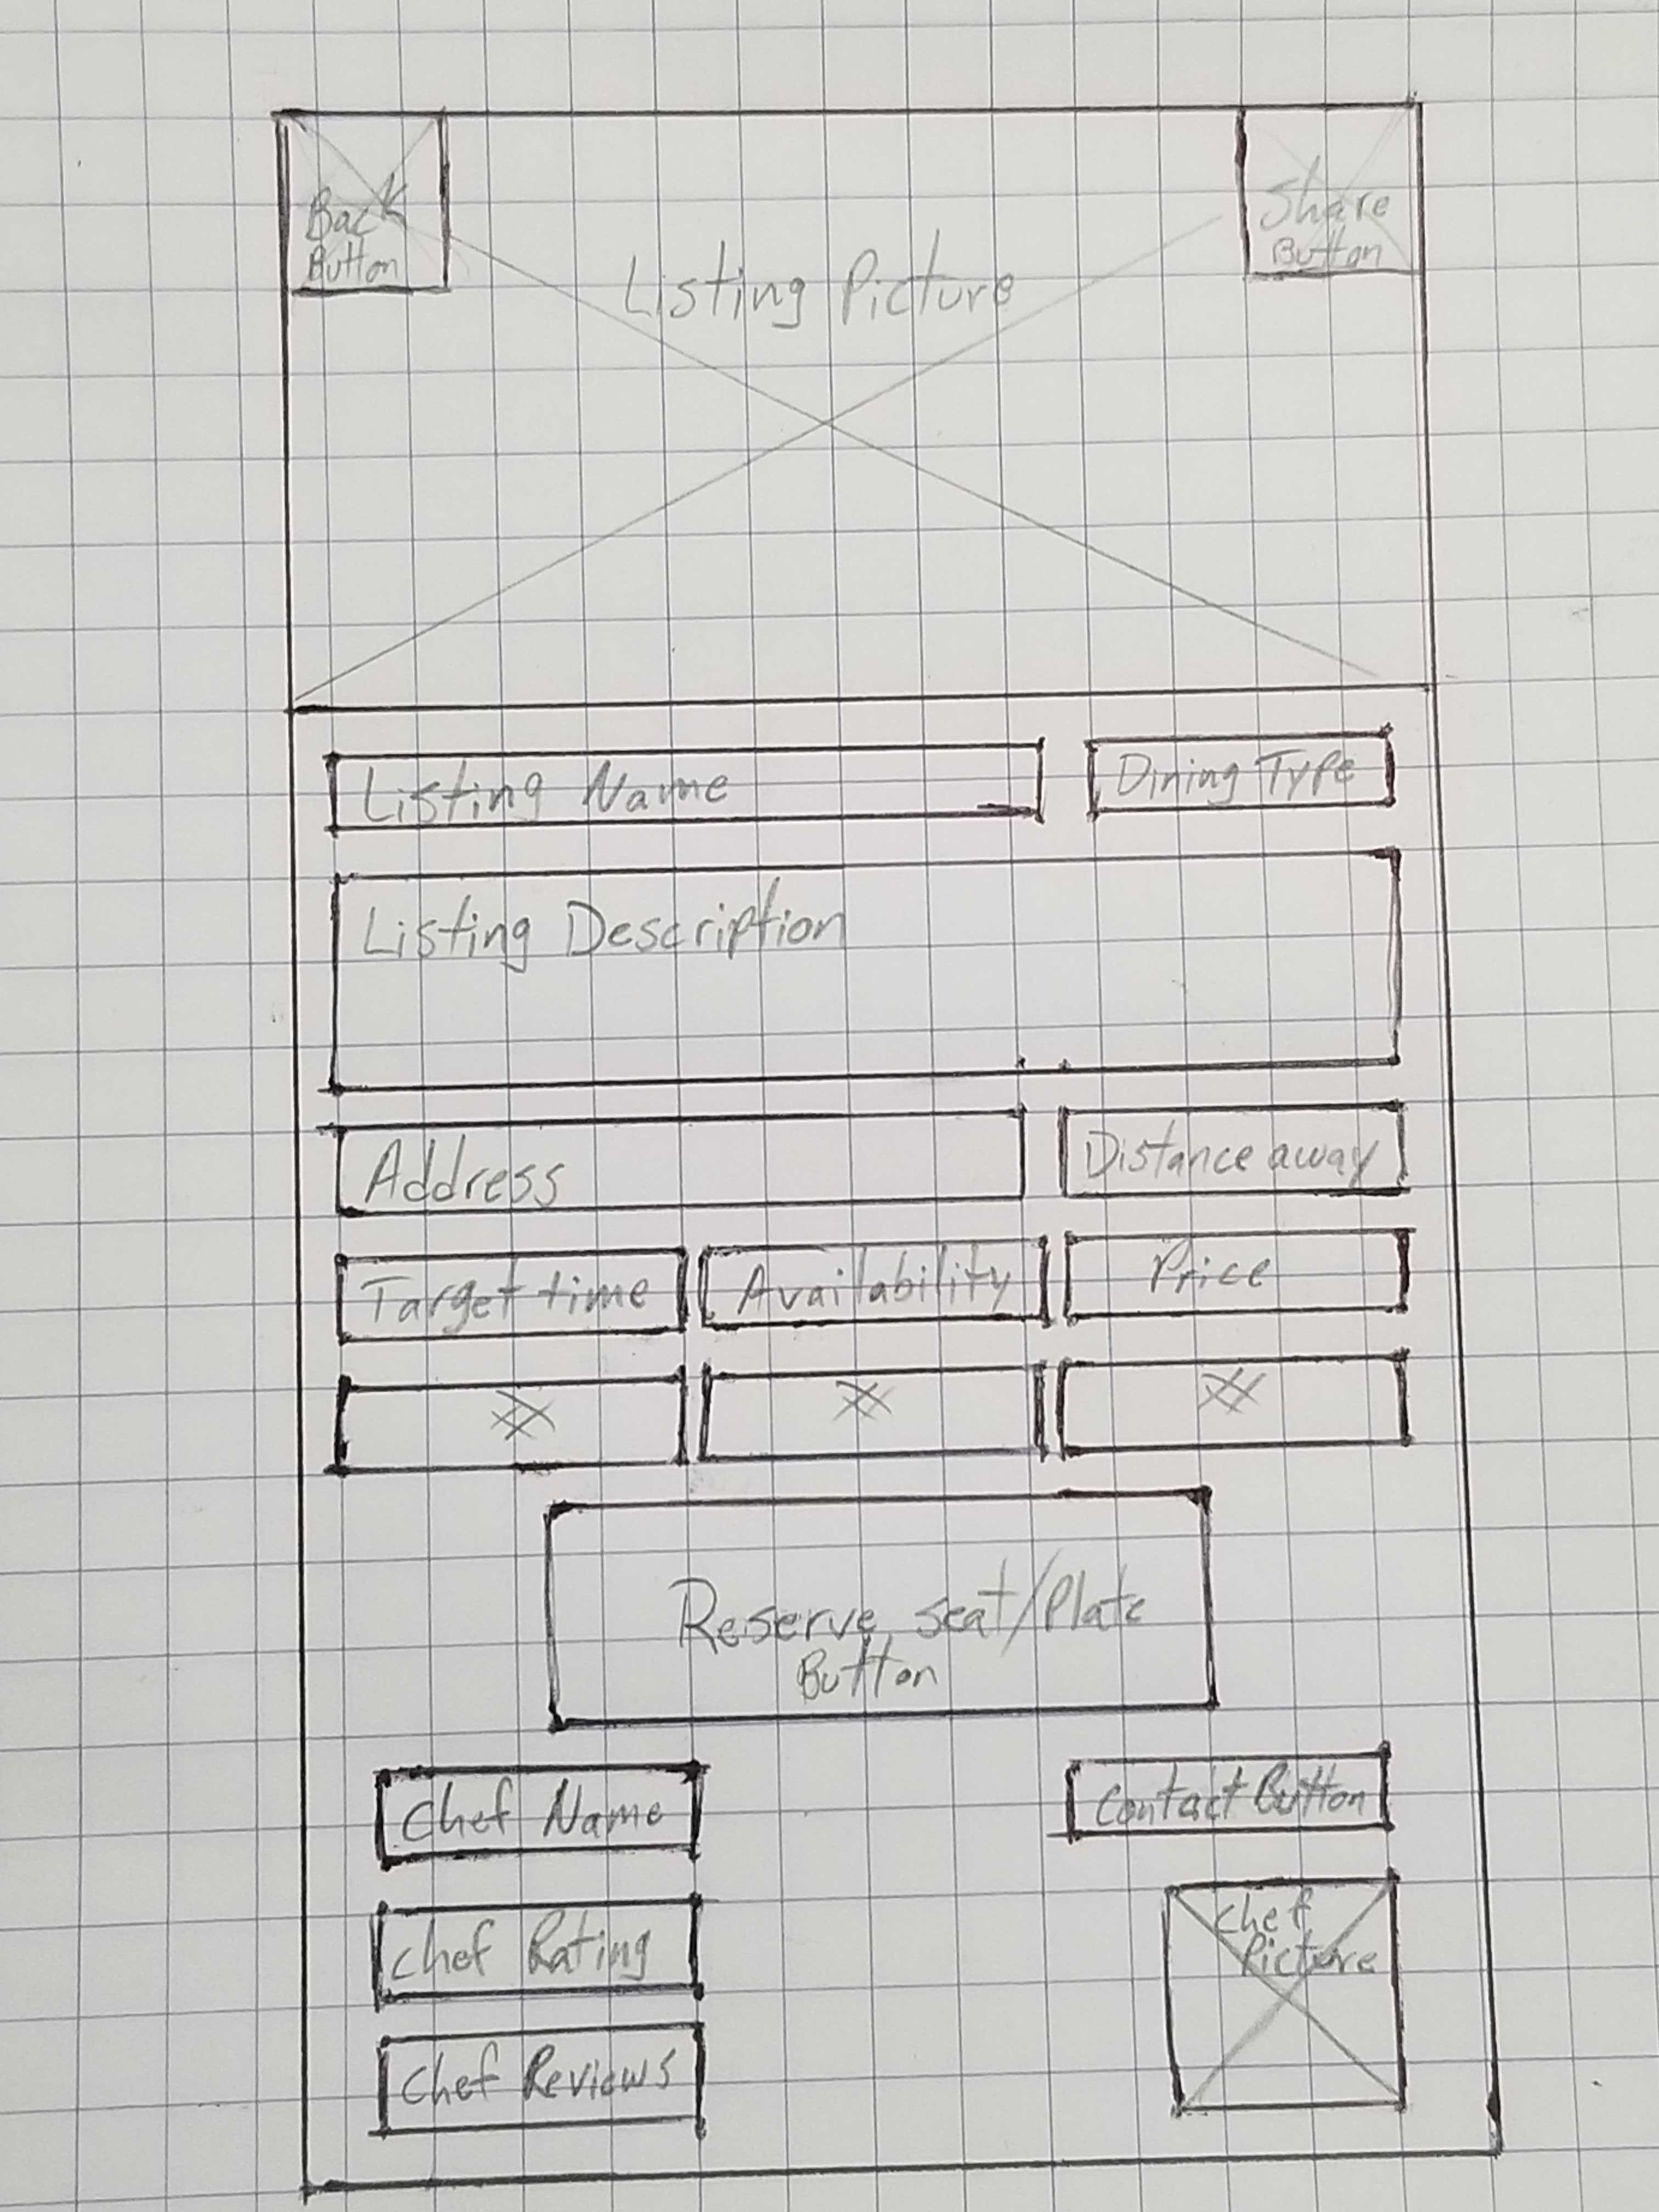 Back
Button
Share
Button
Listing Picture
Listing Name
Dining Type
Listing Description
Address
Distance away
Target time
Availability
Price
#
#
#
Reserve seat/Plate
Button
Chef Name
Contact Button
Chef Rating
Chef
Picture
Chef Reviews